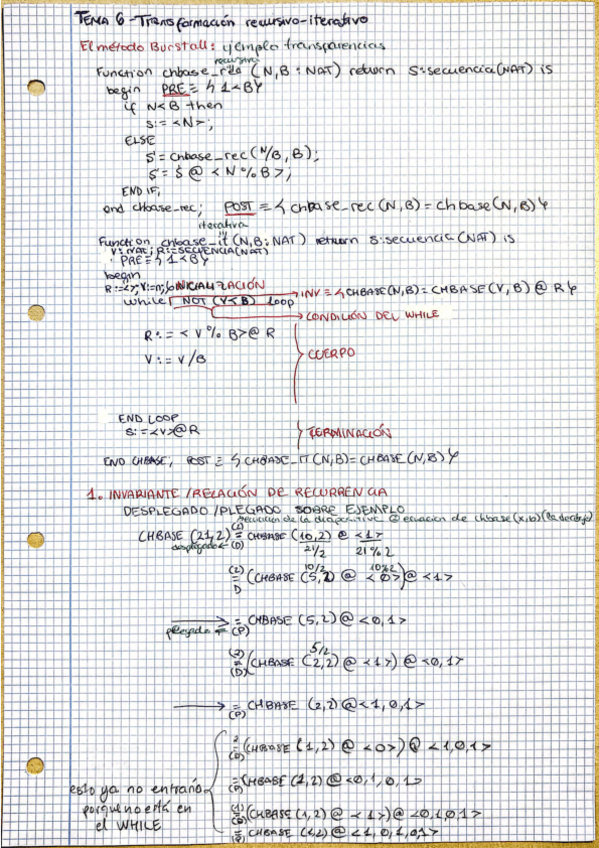 TEMA 6 - Transformación recursivo-iterativo
El método Burstall: ejemplo transparencias
recursiva
Function chbase_rec (N,B : NAT) return S:secuencia(NAT) is
begin PRE ≡ {1<B}
if N<B then
s:= <N>;
ELSE
S = chbase_rec(N/B, B);
S = S @ <N%B>;
END IF;
end chbase_rec; POST ≡ {chbase_rec(N,B) = chbase(N,B)}
iterativa
Function chbase_it (N,B:NAT) return S:secuencia(NAT) is
V:NAT; R:=SECUENCIA(NAT)
PRE ≡ {1<B}
begin
R:=<>; V:=n; INICIALIZACIÓN
while NOT (V<B) loop → INV ≡ {CHBASE(N,B) = CHBASE(V,B) @ R}
→ CONDICIÓN DEL WHILE
R := <V%B> @ R
V := V/B
CUERPO
END LOOP
S:=<V>@R
TERMINACIÓN
END CHBASE; POST ≡ {CHBASE_IT(N,B) = CHBASE(N,B)}
1. INVARIANTE/RELACIÓN DE RECURRENCIA
DESPLEGADO/PLEGADO SOBRE EJEMPLO
ecuación de la diapositiva ② ecuación de chbase(x,b)
CHBASE (21,2) (2)= CHBASE (10,2) @ <1>
desplegado ← (D) 21/2 21%2
10/2 10%2
(2)=D (CHBASE (5,2) @ <0>) @ <1>
plegado → =(P) CHBASE (5,2) @ <0,1>
5/2
(2)=(D) (CHBASE (2,2) @ <1>) @ <0,1>
→ =(P) CHBASE (2,2) @ <1,0,1>
2=(D) (CHBASE (1,2) @ <0>) @ <1,0,1>
=(P) CHBASE (1,2) @ <0,1,0,1>
esto ya no entraría
porque no está en
el WHILE
(1)=(D) (CHBASE (1,2) @ <1>) @ <0,1,0,1>
= CHBASE (1,2) @ <1,0,1,0,1>